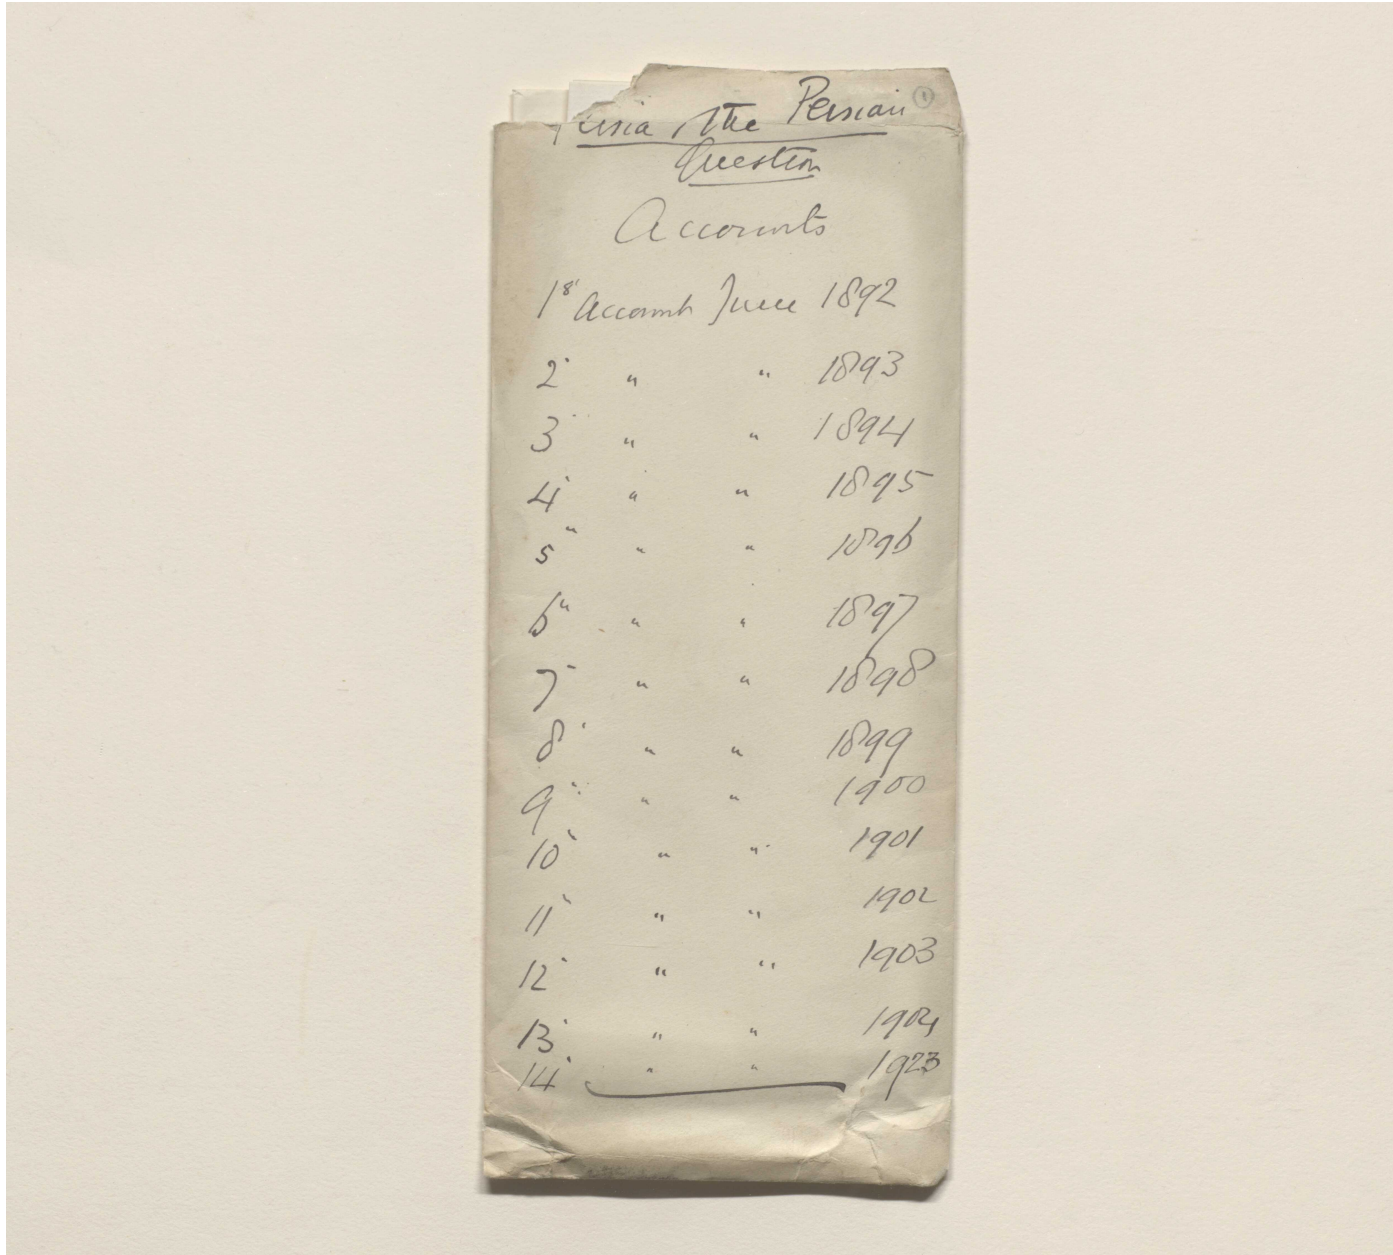 Persia & the Persian 1
Question
Accounts
1st Account June 1892
2" " " 1893
3" " " 1894
4" " " 1895
5" " " 1896
6" " " 1897
7" " " 1898
8" " " 1899
9" " " 1900
10" " " 1901
11" " " 1902
12" " " 1903
13" " " 1904
14" " " 1923